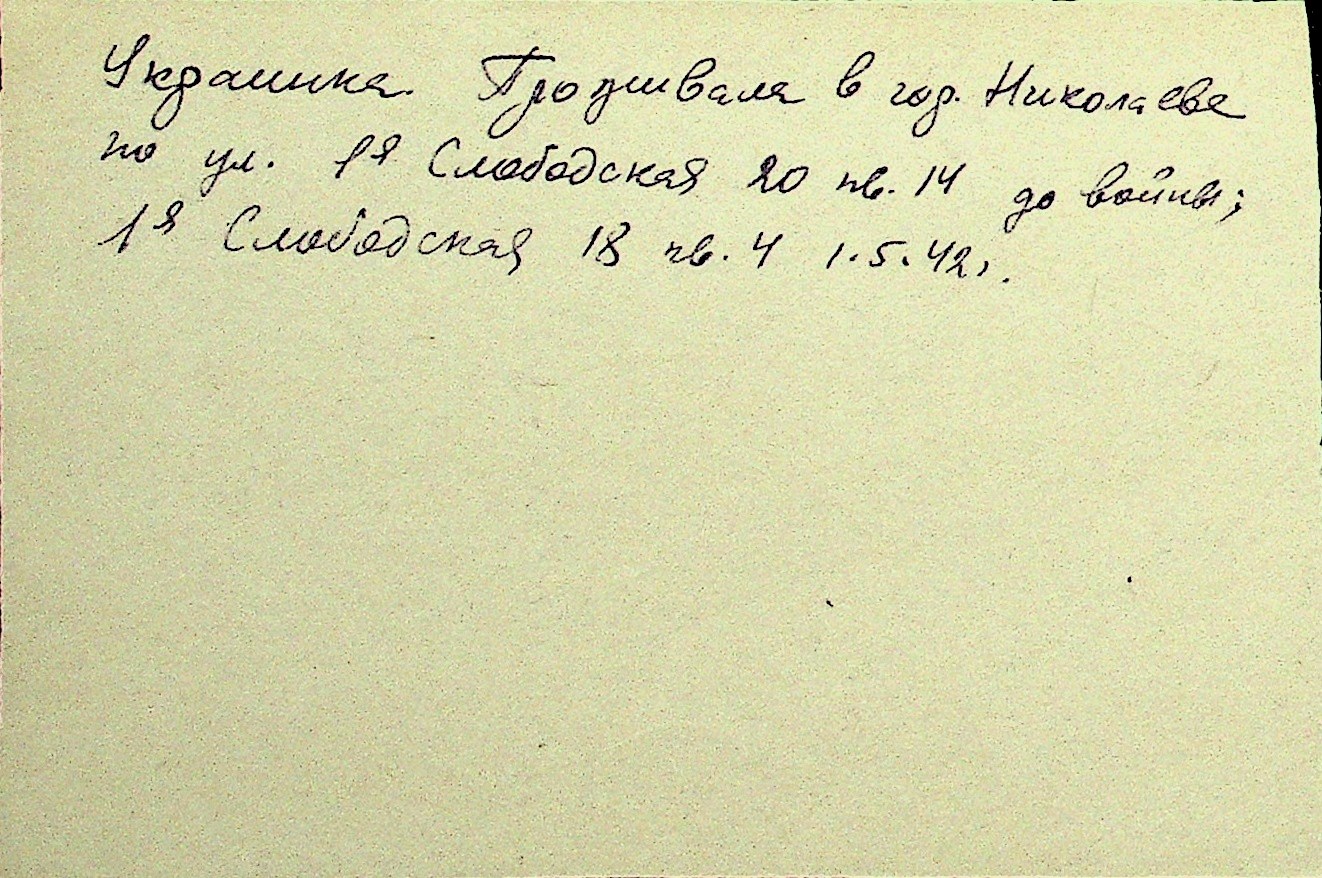 Украинка. Проживала в гор. Николаеве
по ул. 1я Слободская 20 кв. 14 до войны;
1я Слободская 18 кв. 4 1.5.42г.